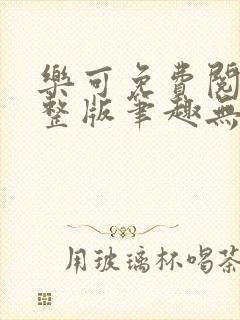 樂可免費閱
整版筆趣無
用玻璃杯喝茶